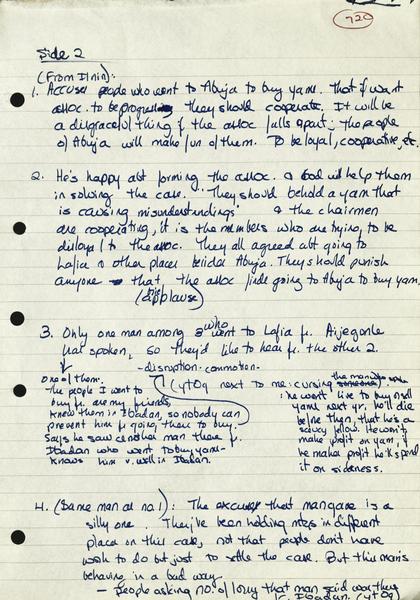 720
Side 2
(From Ilnin):
1. Accuses people who went to Abuja to buy yam. That if want
assoc. to be progressing they should cooperate. It will be
a disgraceful thing if the assoc falls apart; the people
of Abuja will make fun of them. To be loyal, cooperative, etc.
2. He's happy abt forming the assoc. & God will help them
in solving the case. "They should behold a yam that
is causing misunderstandings" & the chairmen
are cooperating, it is the members who are trying to be
disloyal to the assoc. They all agreed abt going to
Lafia & other places besides Abuja. They should punish
anyone that the assoc finds going to Abuja to buy yam.
(applause)
3. Only one man among 3 who went to Lafia fr. Aijegonle
has spoken, so they'd like to hear fr. the other 2.
- disruption - commotion -
One of them:
The people I went to
buy fr. are my friends
knew them in Ibadan, so nobody can
prevent him fr going there to buy.
Says he saw another man there fr.
Ibadan who went to buy yam -
knows him v. well in Ibadan.
(ytog next to me: cursing the man
he went like to buy & sell
yams next yr, he'll die
before then, that he's a
saucy fellow. He won't
make profit on yam, if
he makes profit he'll spend
it on sickness.
4. (Same man at no. 1): The excuse that man gave is a
silly one. They've been holding mtgs in different
place on this case, not that people don't have
work to do but just to settle the case. But this man is
behaving in a bad way
- People asking no. of lorry that man said was there
fr. Ibadan. (ytog)